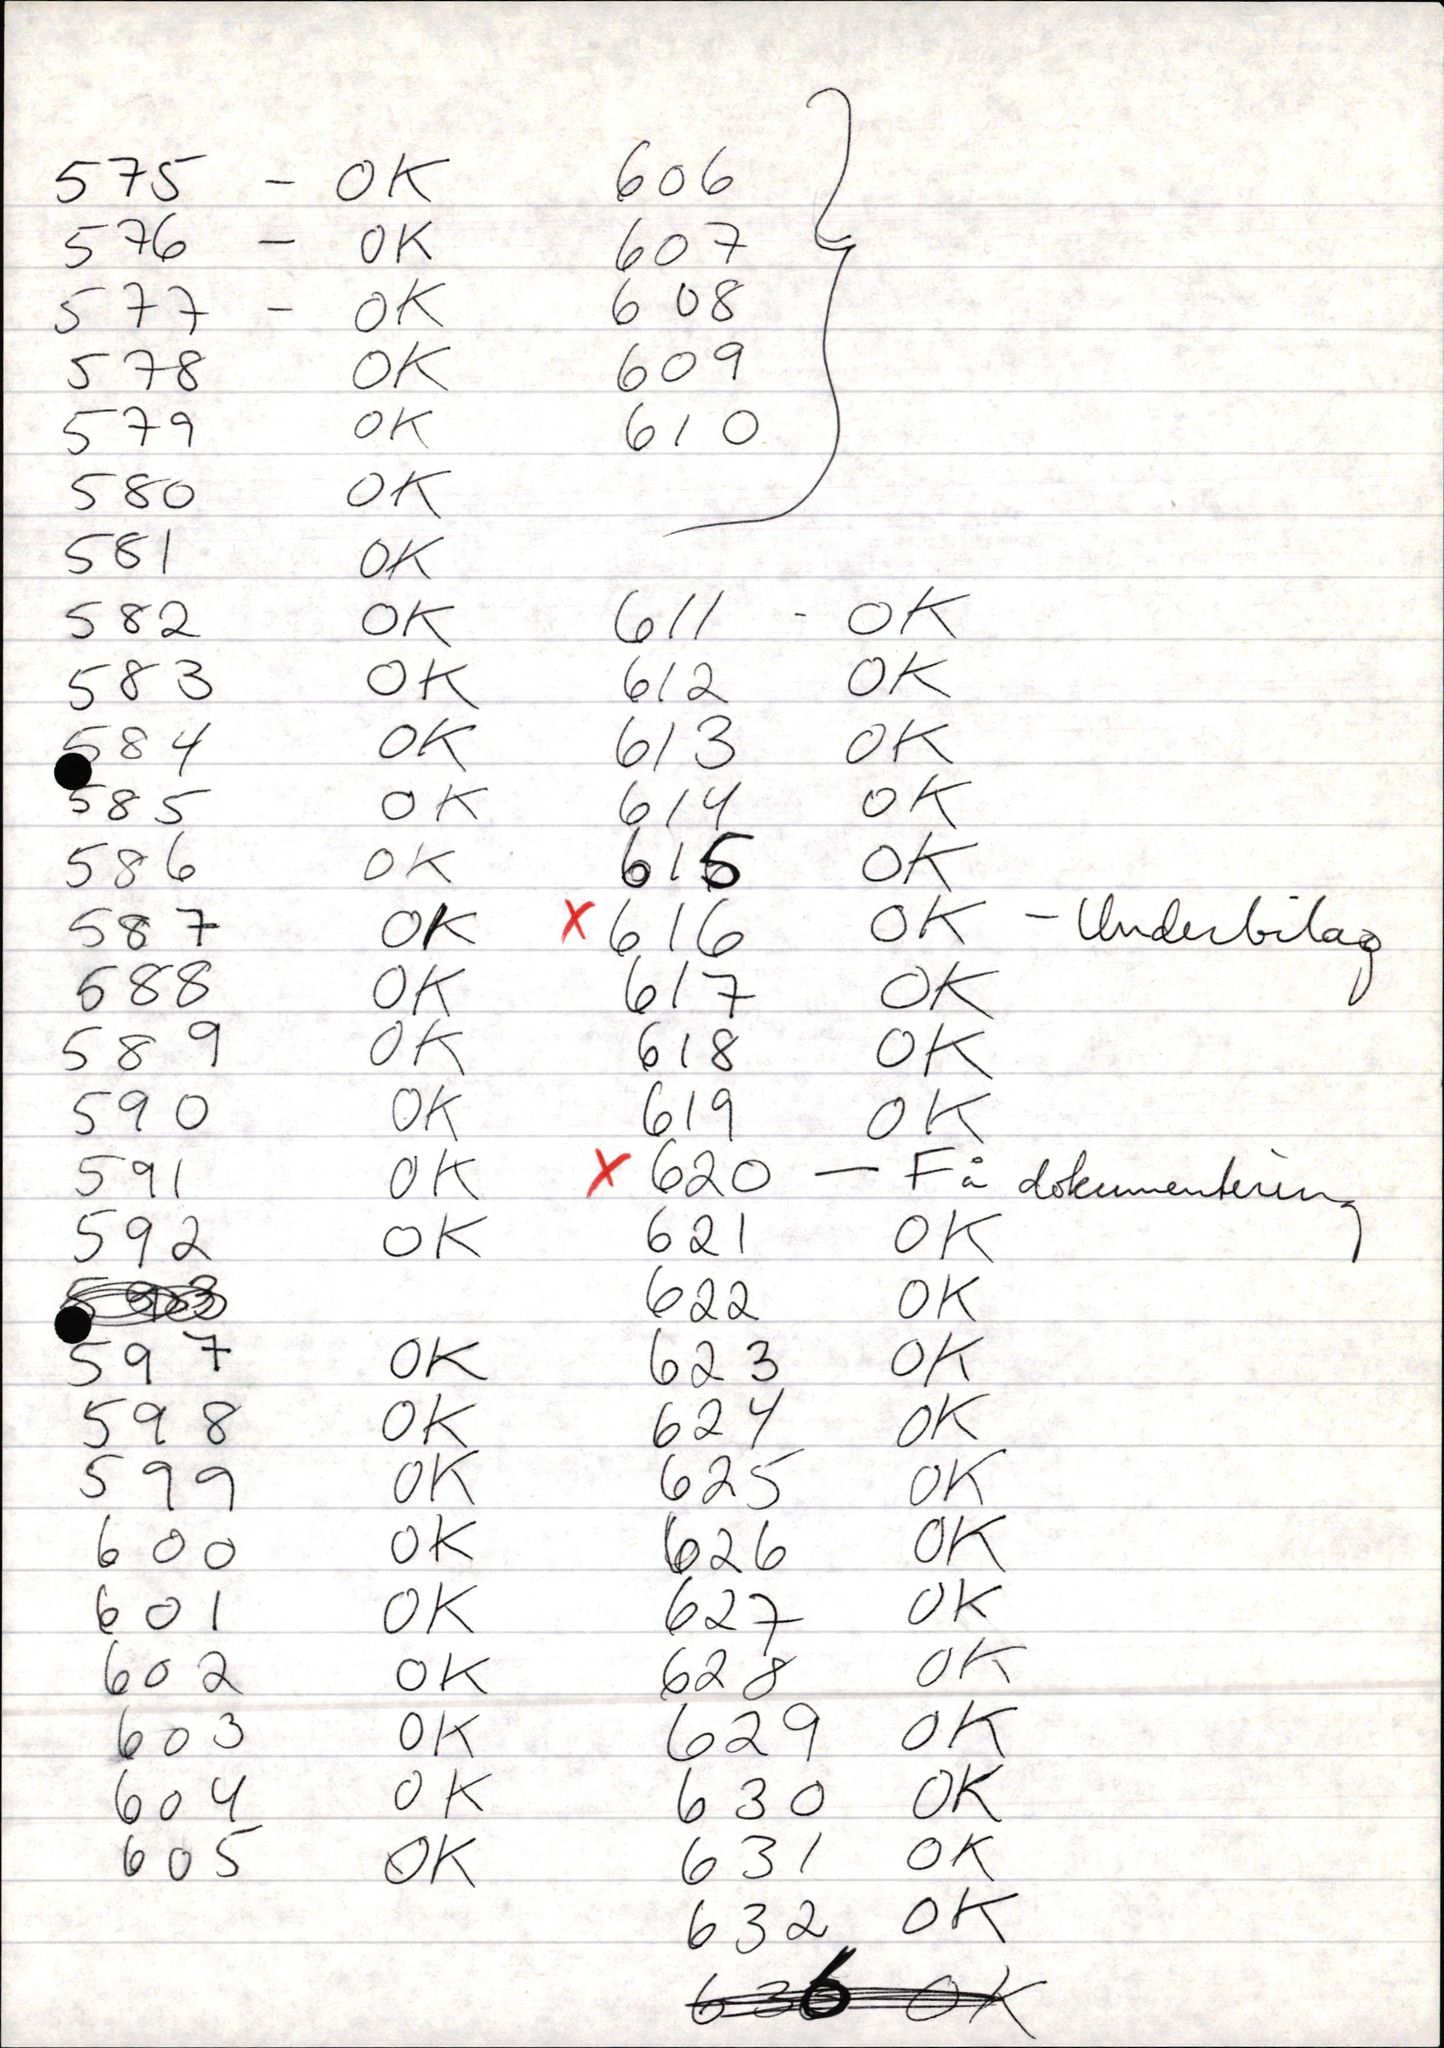 575 - OK
576 - OK
577 - OK
578 OK
579 OK
580 OK
581 OK
582 OK
583 OK
584 OK
585 OK
586 OK
587 OK
588 OK
589 OK
590 OK
591 OK
592 OK
593
597 OK
598 OK
599 OK
600 OK
601 OK
602 OK
603 OK
604 OK
605 OK
606
607
608
609
610
611 - OK
612 OK
613 OK
614 OK
615 OK
x 616 OK - Underbilag
617 OK
618 OK
619 OK
x 620 — Få dokumentering
621 OK
622 OK
623 OK
624 OK
625 OK
626 OK
627 OK
628 OK
629 OK
630 OK
631 OK
632 OK
636 OK